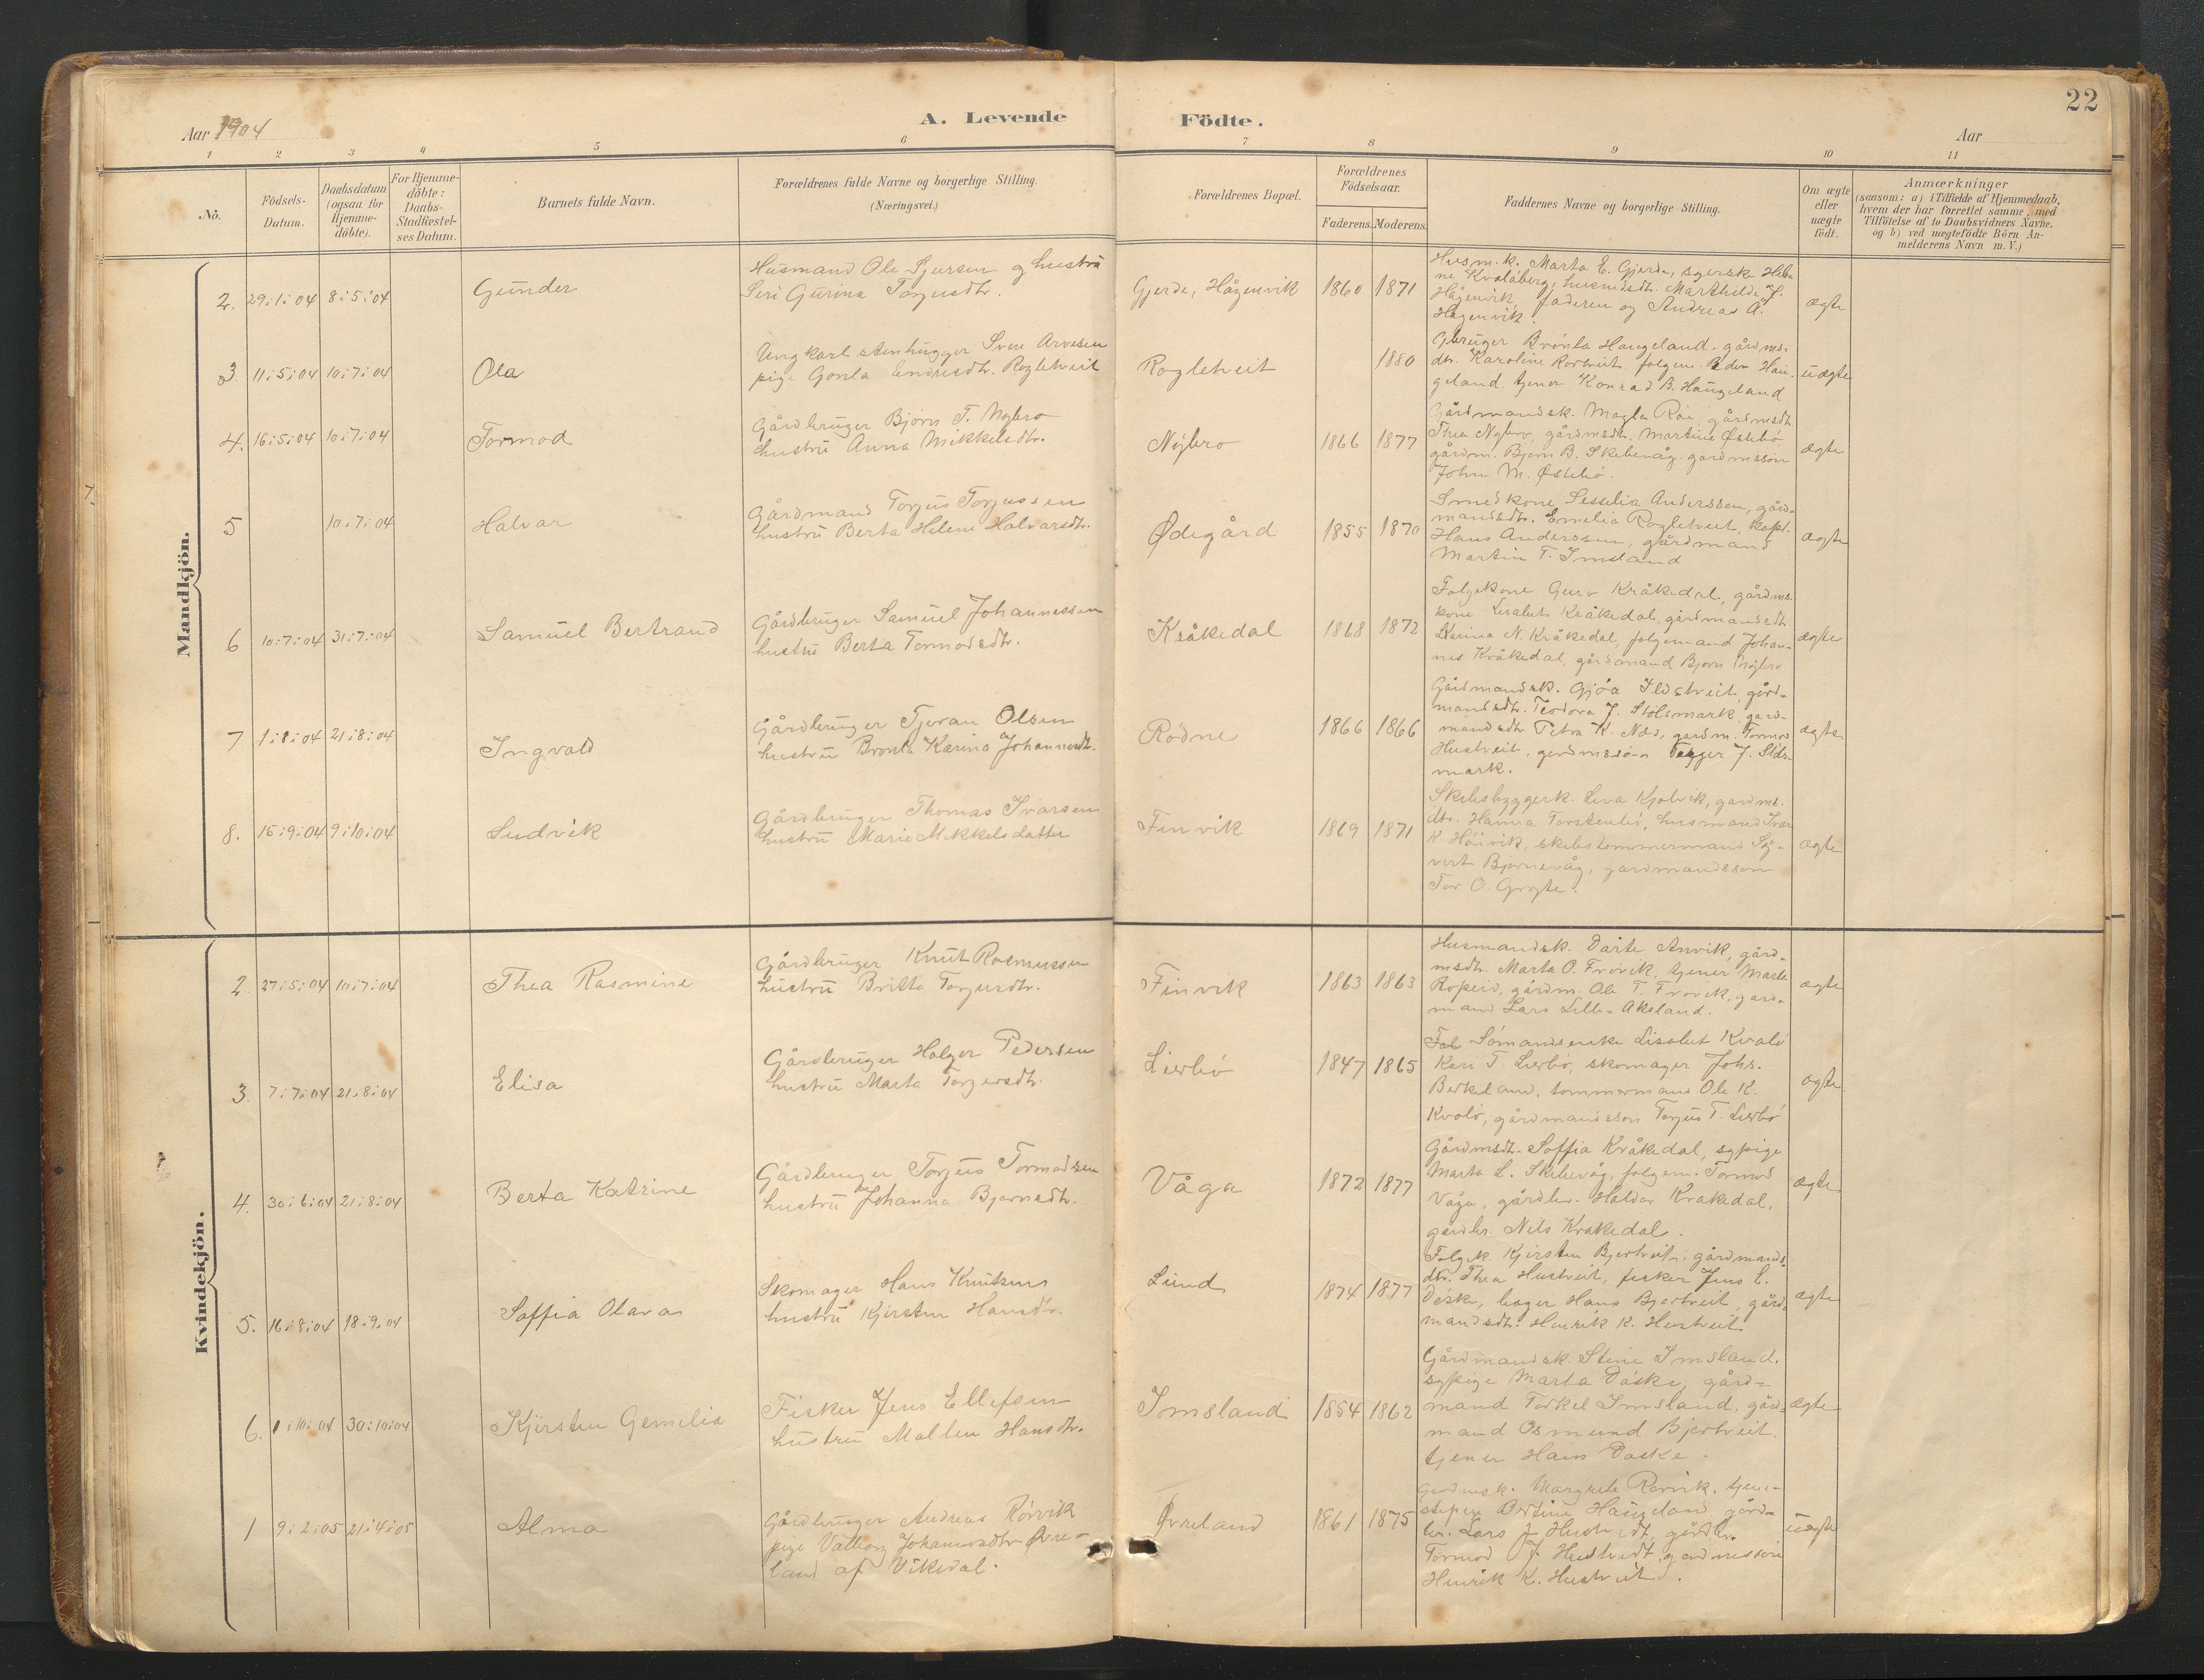 22
Aar 1904
A. Levende Födte.
Aar
1 2 3 4 5 6 7 8 9 10 11
No.
Födsels-
Datum.
Daabsdatum
(ogsaa for
Hjemme-
döbte).
For Hjemme-
döbte:
Daabs-
Stadfæstel-
ses Datum.
Barnets fulde Navn.
Forældrenes fulde Navne og borgerlige Stilling.
(Næringsvei.)
Forældrenes Bopæl.
Forældrenes
Födselsaar.
Faderens. Moderens.
Faddernes Navne og borgerlige Stilling.
Om ægte
eller
uægte
födt.
Anmærkninger
(saasom: a) i Tilfælde af Hjemmedaab,
hvem der har forrettet samme, med
Tilföielse af to Daabsvidners Navne.
og b) ved uægtefödte Börn An-
melderens Navn m. V.)
Mandkjön.
2. 29:1:04 8:5:04 Gunder
Husmand Ole Sjursen og hustru
Seri Gurina Torjusdtr.
Gjerde, Hågenvik 1860 1871
Husm.k. Marta E. Gjerde, syerske
Kvaløberg, husmdsdtr. Marthilde J.
Hågenvik, faderen og Andreas A.
Hågenvik.
ægte
3. 11:5:04 10:7:04 Ola
Ungkarl stenhugger Sven Arvesen
pige Gonla Endresdtr. Rogletveit
Rogletveit 1880
Gbruger Brønla Haugeland. gårdms.
dtr. Karoline Rortveit, følgem. Peder Hau-
geland. tjener Konrad B. Haugeland
uægte
4. 16:5:04 10:7:04 Tormod
Gårdbruger Bjørn T. Nøjbro
hustru Anna Mikkelsdtr.
Nøjbro 1866 1877
Gårdmandsk. Magla Roi, gårdmsdt
Thea Nybro, gårdmsdtr. Martine Østebø
gårdm. Bjørn B. Skibevåg. gardmssøn
John M. Østebø.
ægte
5 10:7:04 Halvar
Gårdmand Torjus Torjussen
hustru Berta Helene Halvarsdtr.
Ødegård 1855 1870
Smedkone Sesselia Anderssen, gård-
mandsdtr. Emelia Rogletveit, kapt.
Hans Anderssen, gårdmand
Martin T. Imsland
ægte
6 10:7:04 31:7:04 Samuel Bertrand
Gårdbruger Samuel Johannessen
hustru Berta Tormodsdtr.
Kråkedal 1868 1872
Følgekone Guro Kråkedal, gårdms.
kone Lisabet Kråkedal, gårdmandsdtr.
Karina N. Kråkedal, følgemand Johan-
nes Kråkedal, gårdmand Bjørn Nøjbro
ægte
7 1:8:04 21:8:04 Ingvald
Gårdbruger Tjeran Olsen
hustru Bronla Karina Johannesdtr.
Rødne 1866 1866
Gårdmandsk. Gjøa Ilstveit, gård-
mandsdtr. Teodora J. Stølsmark, gard-
mandsdtr Petra K. Næs, gardm. Tormod
Hustveit, gardmssøn J. Støls-
mark.
ægte
8. 15:9:04 9:10:04 Ludvik
Gårdbruger Thomas Ivarsen
hustru Marie Mikkelsdatter
Finvik 1869 1871
Skibsbyggerk. Lena Kjølvik, gardms.
dtr. Hanna Torstenbø, husmand Ivar
K. Høivik, skibstømmermand Sy-
vert Bjørnevåg, gardmandssøn
Tor O. Grøgte.
ægte
Kvindekjön.
2. 27:5:04 10:7:04 Thea Rasmine
Gårdbruger Knut Rasmussen
hustru Britta Torjusdtr.
Finvik 1863 1863
Husmandsk. Dårte Anvik, gård-
msdtr. Marta O. Frøvik, tjener Marta
Ropeid, gårdm. Ole T. Frøvik, gard-
mand Lars Lille-Aksland.
ægte
3. 7:7:04 21:8:04 Elisa
Gårdbruger Holger Pedersen
hustru Marta Torgersdtr.
Lierbø 1847 1865
Sømandsenke Lisabet Kvalø
Kari T. Lierbø, skomager Johs.
Berkeland, tømmermand Ole K.
Kvalø, gårdmandssøn Torjus T. Lierbø
ægte
4. 30:6:04 21:8:04 Berta Katrine
Gårdbruger Torjus Tormodsen
hustru Johanna Bjørnsdtr.
Våga 1872 1877
Gårdmsdtr. Soffia Kråkedal, sypige
Marta L. Skibevåg, følgem. Tormod
Våga, gårdbr. Haldor Kråkedal,
gardbr. Nels Krakedal.
ægte
5. 16:8:04 18:9:04 Soffia Olava
Skomager Hans Knutsen
hustru Kjersten Hansdtr.
Lund 1874 1877
Følgek. Kjersten Bjertveit, gårdmands-
dtr. Thea Hustveit, fisker Jens E.
Døske, bager Hans Bjertveit, gård-
mandsdtr. Henrik K. Hustveit
ægte
6. 1:10:04 30:10:04 Kjirsten Gemelia
Fisker Jens Ellefsen
hustru Mallen Hansdtr.
Imsland 1854 1862
Gårdmandsk. Stine Imsland.
sypige Marta Døske, gård-
mand Torkel Imsland, gård-
mand Osmund Bjertveit,
tjener Hans Døske.
ægte
1 9:2:05 21:4:05 Alma
Gårdbruger Andreas Rørvik
pige Valborg Johannesdtr. Øvre-
land af Vikedal.
Øvreland 1861 1875
Gardmsk. Margrete Rørvik, tjene-
stepige Bertine Haugeland, gård-
br. Lars J. Hustvedt, gårdbr.
Tormod J. Hustvedt, gardmssøn
Henrik K. Hustveit.
uægte